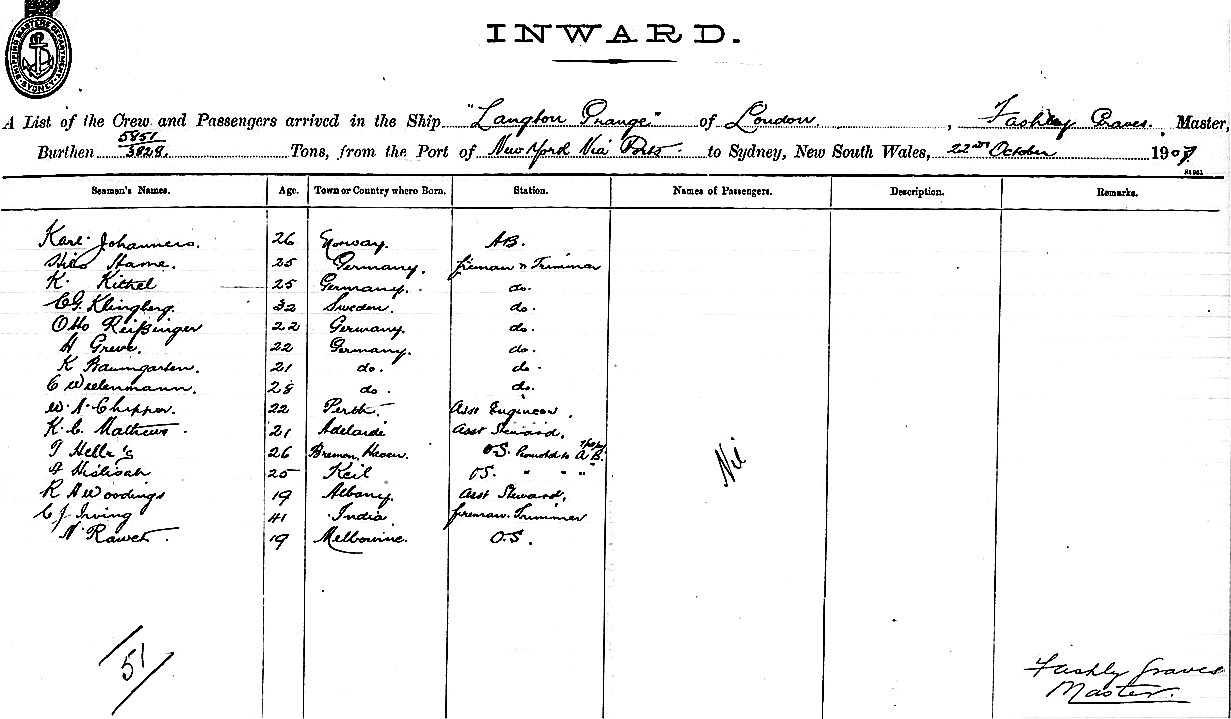 SHIPPING MASTERS DEPARTMENT SYDNEY
INWARD.
A List of the Crew and Passengers arrived in the Ship "Langton Grange" of London, Fashby Graves, Master,
Burthen 5851/3828 Tons, from the Port of New York Via Ports to Sydney, New South Wales, 22nd October 1907
Seamen's Names. Age. Town or Country where Born. Station. Names of Passengers. Description. Remarks.
Karl 26 Norway. AB.
25 Germany. fireman n Trimmer
K. 25 Germany. do.
C.G. Klingberg. 32 Sweden. do.
Otto Reißinger 22 Germany do.
H Greve. 22 Germany. do.
K Baumgarten. 21 do. do.
C 28 do. do.
W. A. Chipper. 22 Perth. Asst Engineer.
K. C. Mathews. 21 Adelaide Asst Steward.
26 Bremen Haven. OS. to AB.
25 Keil OS. " " "
R H Woodings 19 Albany. Asst Steward.
C J Irving 41 India fireman Trimmer
N. 19 Melbourne. O.S.
Nil
51
Fashby Graves
Master.